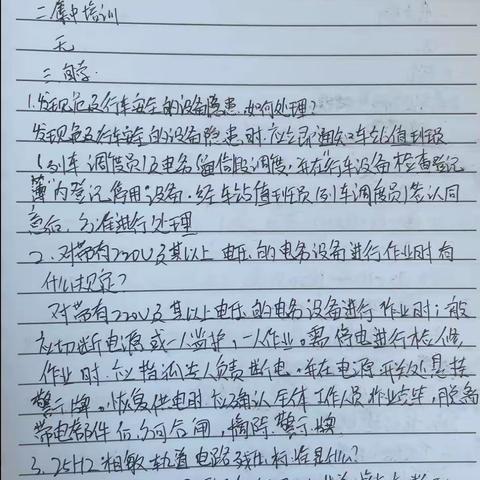 二集中培训
无
三自学
1.发现危及行车安全的设备隐患,如何处理?
发现危及行车安全的设备隐患时,应立即通知车站值班员
(列车调度员)及电务段调度,并在"行车设备检查登记
簿"内登记停用设备,经车站值班员(列车调度员)签认同
意后,方准进行处理
2、对带有220V及其以上电压的电务设备进行作业时有
什么规定?
对带有220V及其以上电压的电务设备进行作业时;一般
应切断电源或一人监护,一人作业。需停电进行检修
作业时,应指派专人负责断电,并在电源开关处悬挂
警示牌。恢复供电时,应确认全体工作人员作业完毕,脱离
带电部件后,方可合闸,摘除警示牌
3、25Hz相敏轨道电路残压标准是什么?